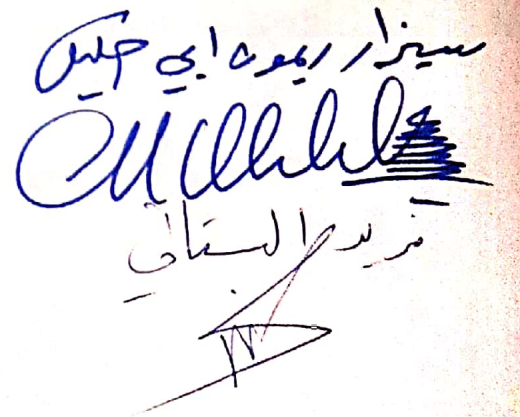 سيزار ريمون ابي خليل
فريد البستاني